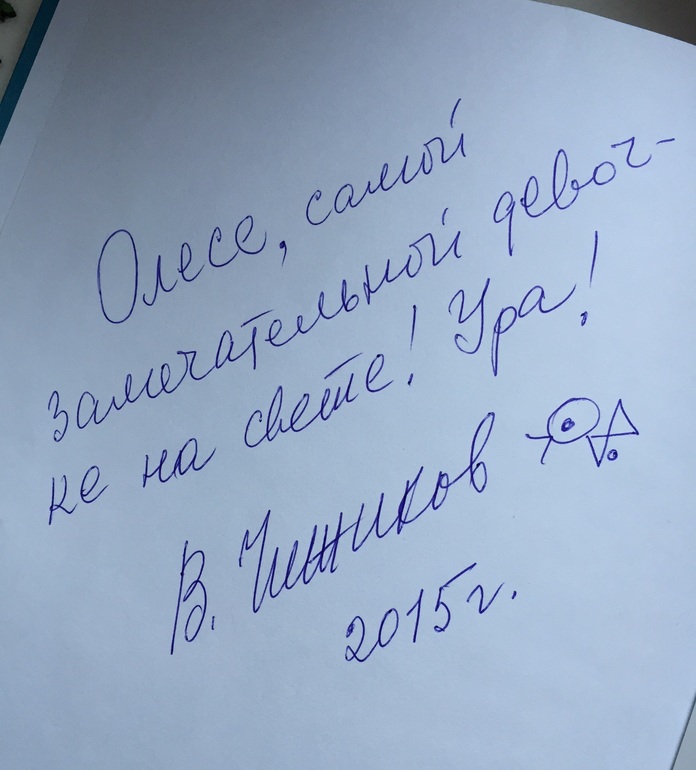 Олесе, самой
замечательной девоч-
ке на свете! Ура!
В. Чижиков
2015г.